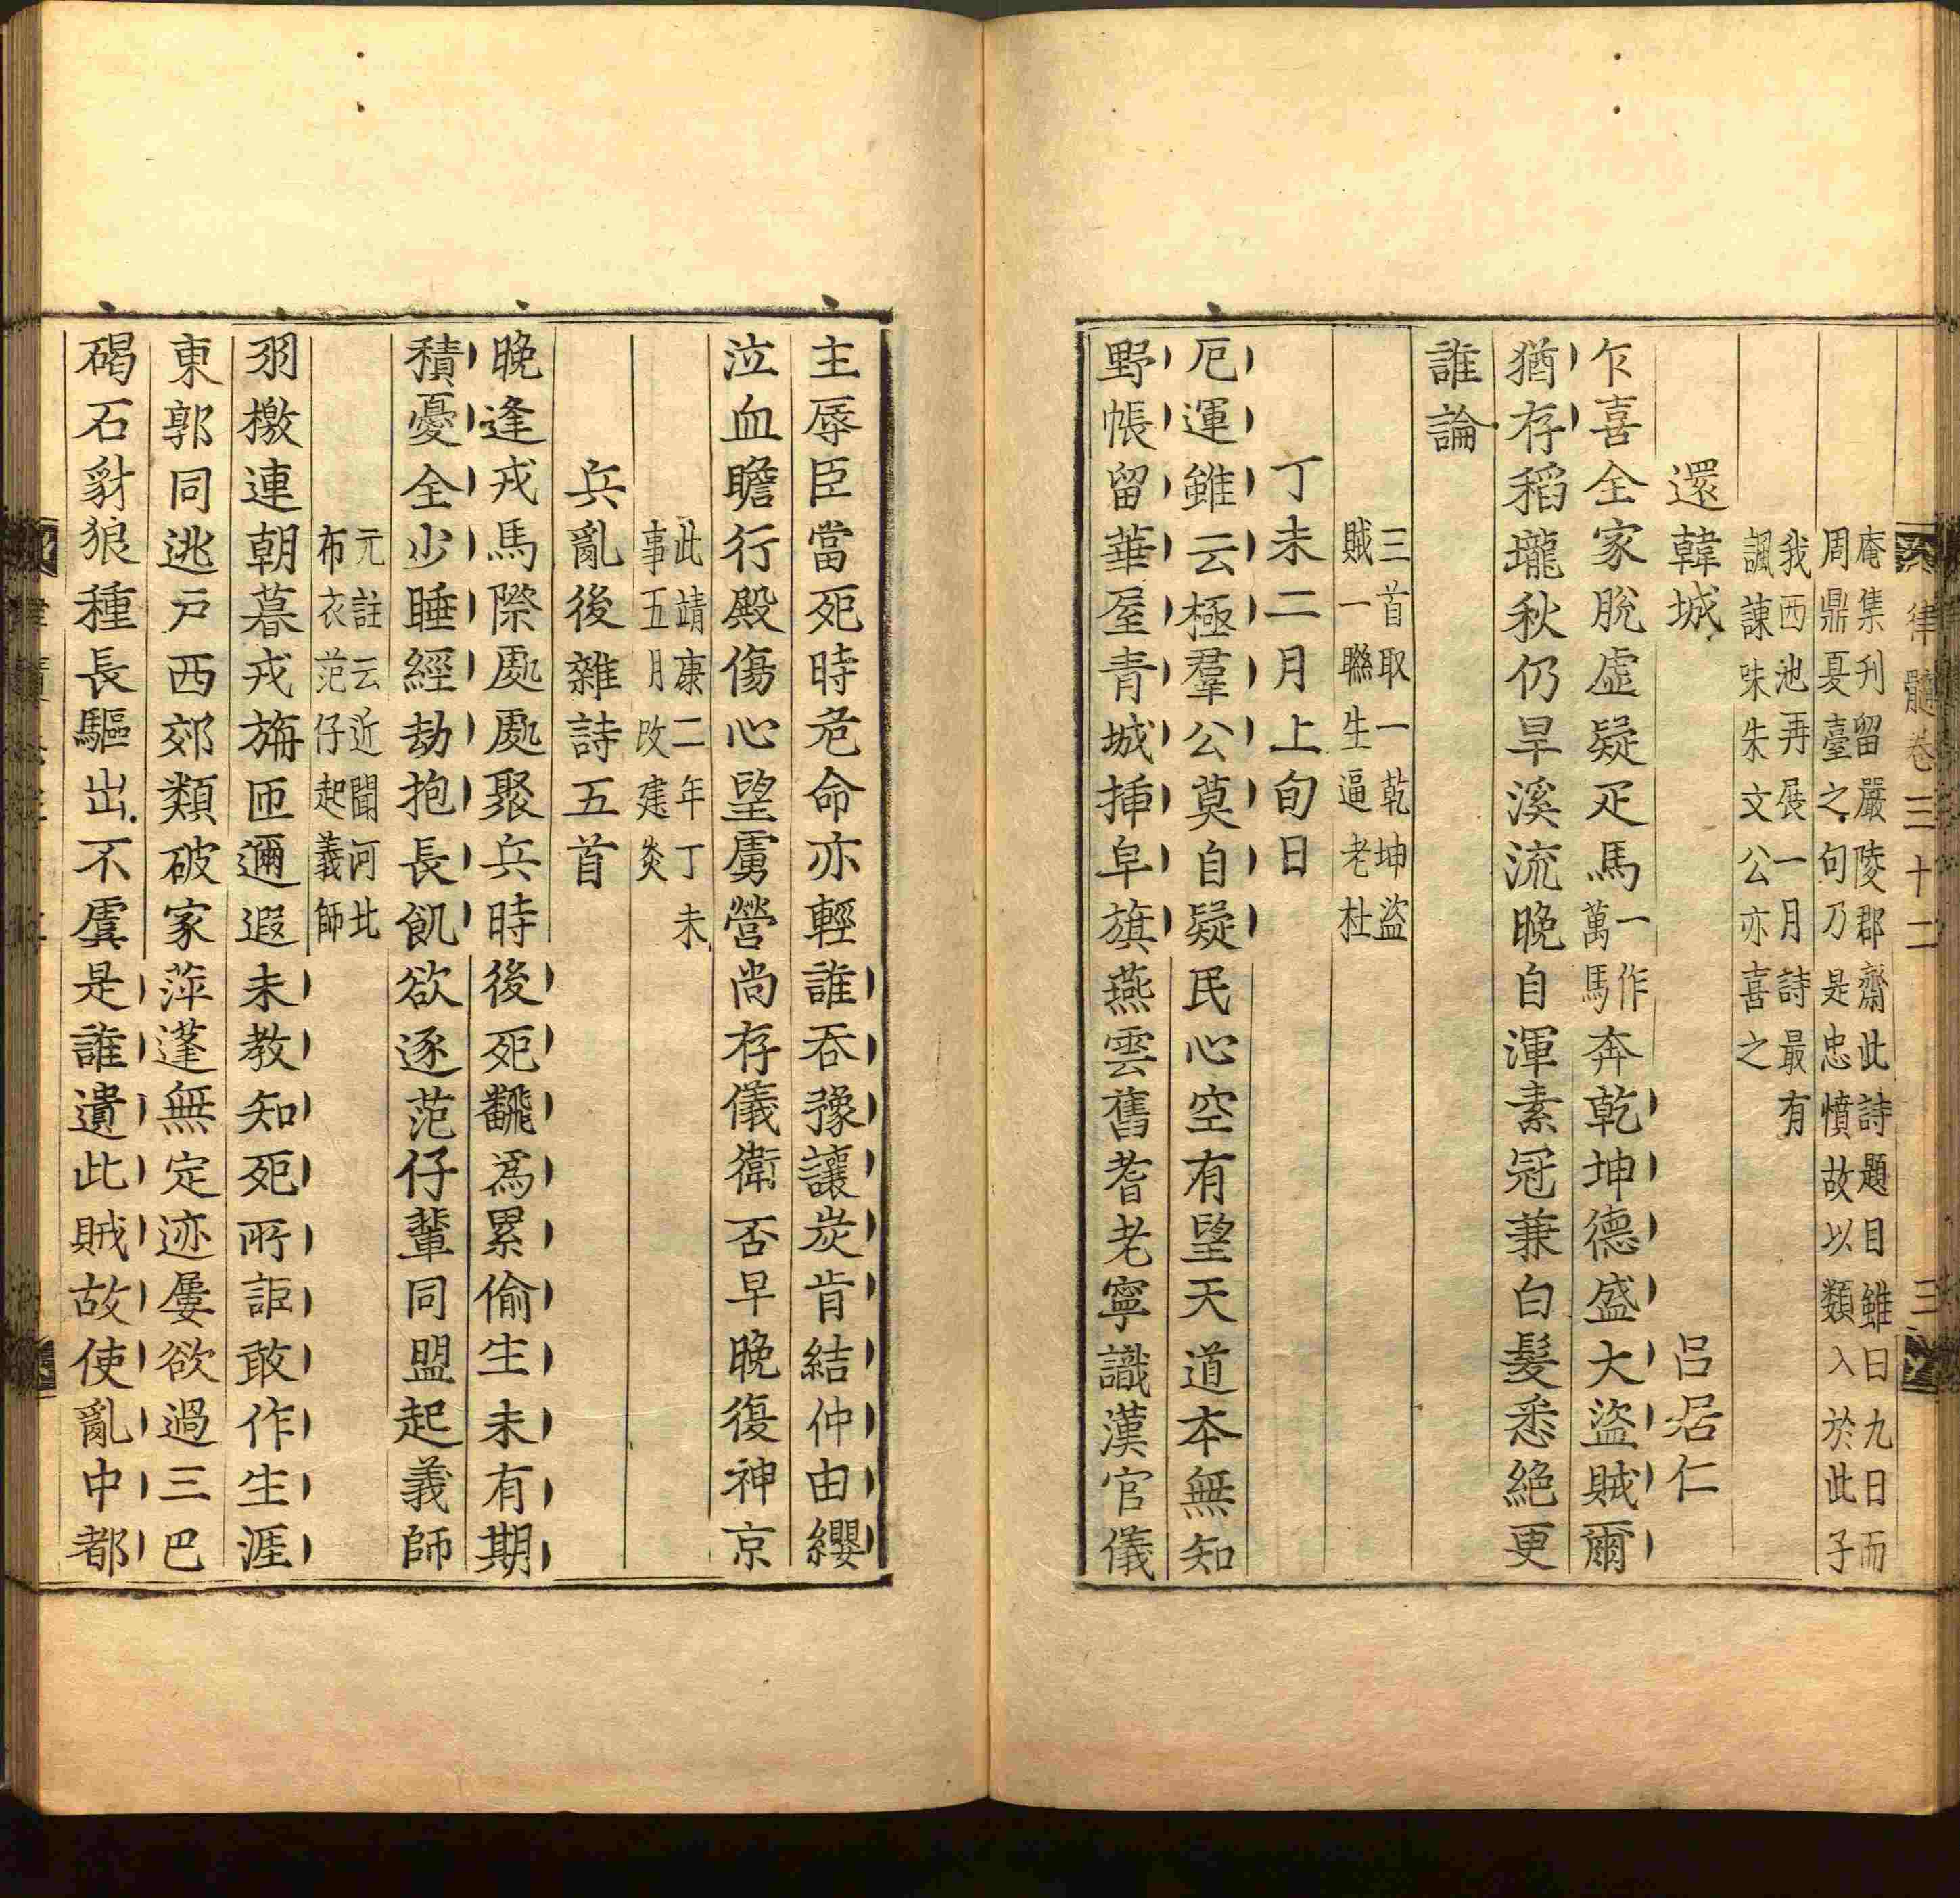 律髓卷三十二 三
庵集刋留嚴陵郡齋此詩題目雖曰九日而
周鼎夏臺之句乃是忠憤故以類入於此子
我西池再展一月詩最有
諷諫味朱文公亦喜之
還韓城 呂居仁
乍喜全家脫虛疑疋馬一作萬馬奔乾坤德盛大盜賊爾
猶存稻壠秋仍旱溪流晚自渾素冠兼白髮悉絕更
誰論
三首取一乾坤盜
賊一聯生逼老杜
丁未二月上旬日
厄運雖云極羣公莫自疑民心空有望天道本無知
野帳留華屋青城揷皁旗燕雲舊耆老寧識漢官儀
主辱臣當死時危命亦輕誰吞豫讓炭肯結仲由纓
泣血瞻行殿傷心望虜營尚存儀衛否早晚復神京
此靖康二年丁未
事五月改建炎
兵亂後雜詩五首
晚逢戎馬際處處聚兵時後死飜爲累偷生未有期
積憂全少睡經劫抱長飢欲逐范仔輩同盟起義師
元註云近聞河北
布衣范仔起義師
羽檄連朝暮戎旃匝邇遐未教知死所詎敢作生涯
東郭同逃戶西郊類破家萍蓬無定迹屢欲過三巴
碣石豺狼種長驅出不虞是誰遺此賊故使亂中都